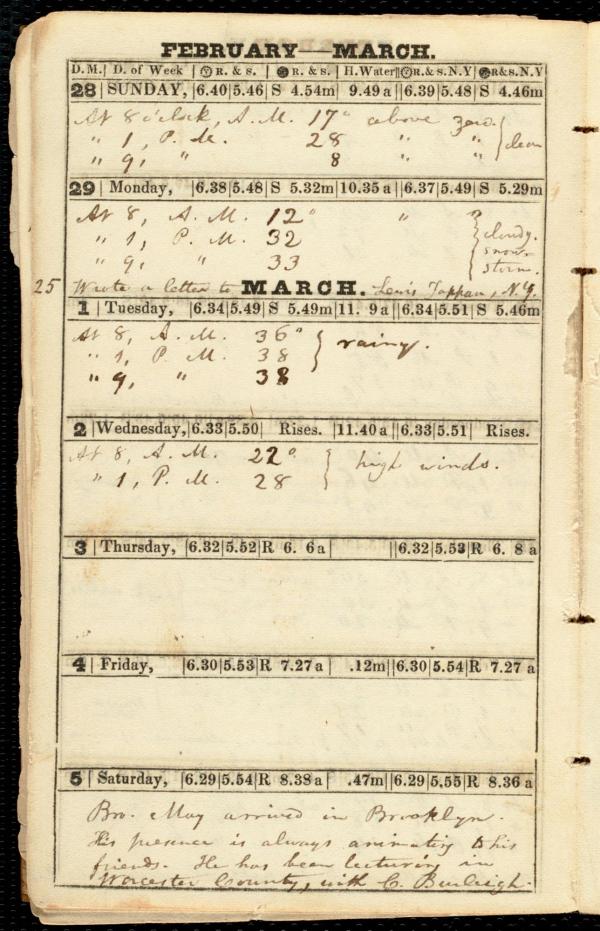 FEBRUARY—MARCH.
D.M. | D. of Week | R. & S. | R. & S. | H.Water || R.& s. N.Y | R&s. N.Y
28 | SUNDAY, | 6.40 | 5.46 | S 4.54m | 9.49 a || 6.39 | 5.48 | S 4.46m
At 8 o'clock, A. M. 17° above zero.
" 1, P. M. 28 " " } clear
" 9, " 8 " "
29 | Monday, | 6.38 | 5.48 | S 5.32m | 10.35 a || 6.37 | 5.49 | S 5.29m
At 8, A. M. 12° " "
" 1, P. M. 32 } cloudy.
" 9, " 33 snow storm.
25 Wrote a letter to Lewis Tappan, N.Y.
MARCH.
1 | Tuesday, | 6.34 | 5.49 | S 5.49m | 11. 9 a || 6.34 | 5.51 | S 5.46m
At 8, A. M. 36°
" 1, P. M. 38 } rainy.
" 9, " 38
2 | Wednesday, | 6.33 | 5.50 | Rises. | 11.40 a || 6.33 | 5.51 | Rises.
At 8, A. M. 22° } high winds.
" 1, P. M. 28
3 | Thursday, | 6.32 | 5.52 | R 6. 6 a | || 6.32 | 5.53 | R 6. 8 a
4 | Friday, | 6.30 | 5.53 | R 7.27 a | .12m || 6.30 | 5.54 | R 7.27 a
5 | Saturday, | 6.29 | 5.54 | R 8.38 a | .47m || 6.29 | 5.55 | R 8.36 a
Bro. May arrived in Brooklyn.
His presence is always animating to his
friends. He has been lecturing in
Worcester County, with C. Burleigh.